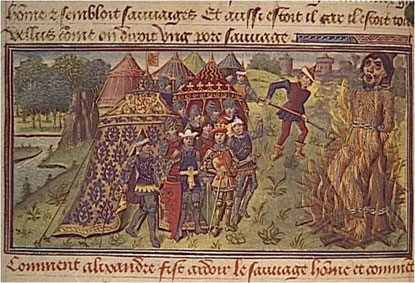 hõme & sembloit sauvaiges Et aussi estoit il car il estoit tout
vellus come on diroit vng porc sauvage
Comment alixandre fist ardoir le sauvage hõme et comment